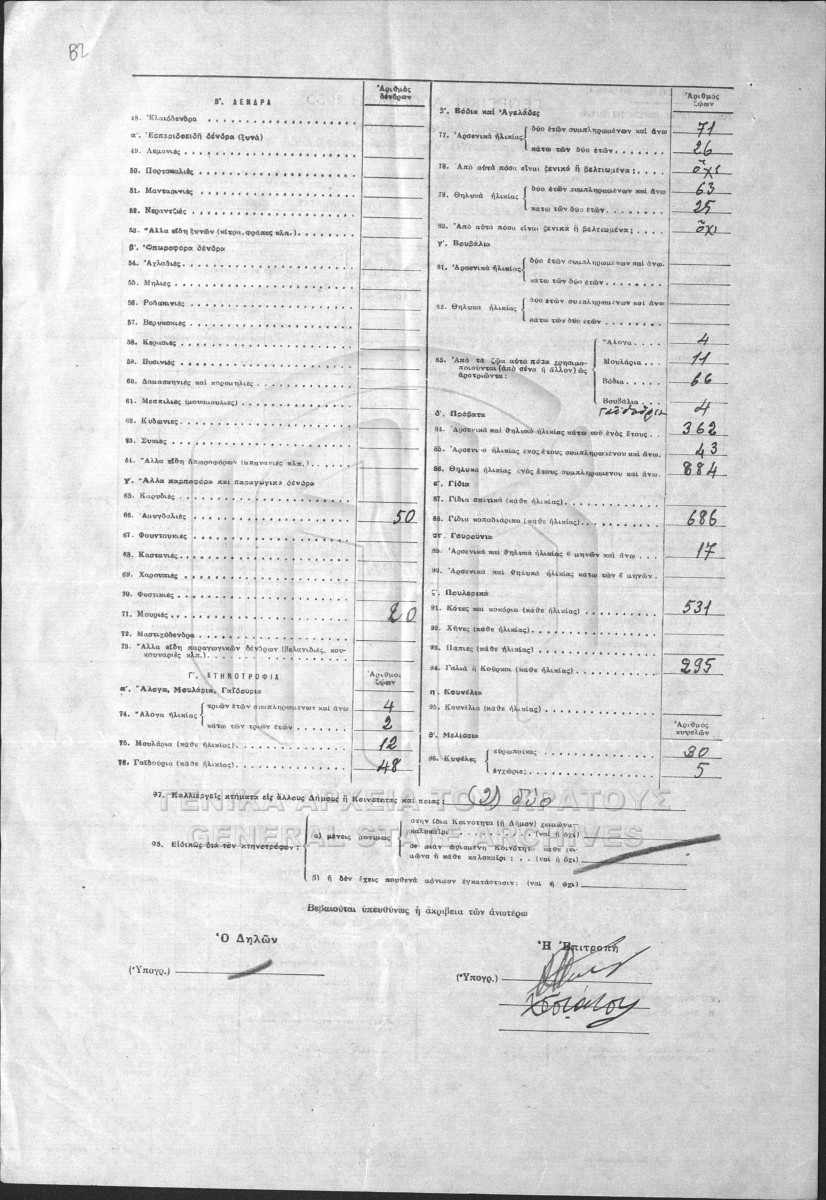 82
Ἀριθμός δένδρων
Β'. ΔΕΝΔΡΑ
48. Ἐλαιόδενδρα
α'. Ἑσπεριδοειδῆ δένδρα (ξυνά)
49. Λεμονιές
50. Πορτοκαλιές
51. Μανταρινιές
52. Νεραντζιές
53. Ἄλλα εἴδη ξυνῶν (κίτρα, φράπες κλπ.)
β'. Ὀπωροφόρα δένδρα
54. Ἀχλαδιές
55. Μηλιές
56. Ροδακινιές
57. Βερυκοκιές
58. Κερασιές
59. Βυσινιές
60. Δαμασκηνιές καί κορομηλιές
61. Μεσπιλιές (μουσμουλιές)
62. Κυδωνιές
63. Συκιές
64. Ἄλλα εἴδη ὀπωροφόρων (μπανανιές κλπ.)
γ'. Ἄλλα καρποφόρα καί παραγωγικά δένδρα
65. Καρυδιές
66. Ἀμυγδαλιές 50
67. Φουντουκιές
68. Καστανιές
69. Χαρουπιές
70. Φυστικιές
71. Μουριές 20
72. Μαστιχόδενδρα
73. Ἄλλα εἴδη παραγωγικῶν δένδρων (βελανιδιές, κουκουναριές κλπ.)
Γ'. ΚΤΗΝΟΤΡΟΦΙΑ
Ἀριθμός ζώων
α'. Ἄλογα, Μουλάρια, Γαϊδούρια
74. Ἄλογα ἡλικίας τριῶν ἐτῶν συμπληρωμένων καί ἄνω 4
κάτω τῶν τριῶν ἐτῶν 2
75. Μουλάρια (κάθε ἡλικίας) 12
76. Γαϊδούρια (κάθε ἡλικίας) 48
Ἀριθμός ζώων
β'. Βόδια καί Ἀγελάδες
77. Ἀρσενικά ἡλικίας δύο ἐτῶν συμπληρωμένων καί ἄνω 71
κάτω τῶν δύο ἐτῶν 26
78. Ἀπό αὐτά πόσα εἶναι ξενικά ἤ βελτιωμένα; ὄχι
79. Θηλυκά ἡλικίας δύο ἐτῶν συμπληρωμένων καί ἄνω 63
κάτω τῶν δύο ἐτῶν 25
80. Ἀπό αὐτά πόσα εἶναι ξενικά ἤ βελτιωμένα; ὄχι
γ'. Βουβάλια
81. Ἀρσενικά ἡλικίας δύο ἐτῶν συμπληρωμένων καί ἄνω
κάτω τῶν δύο ἐτῶν
82. Θηλυκά ἡλικίας δύο ἐτῶν συμπληρωμένων καί ἄνω
κάτω τῶν δύο ἐτῶν
83. Ἀπό τά ζῶα αὐτά πόσα χρησιμοποιοῦνται (ἀπό σένα ἤ ἄλλον) ὡς ἀροτριῶντα:
Ἄλογα 4
Μουλάρια 11
Βόδια 66
Βουβάλια
γαϊδούρια 4
δ'. Πρόβατα
84. Ἀρσενικά καί θηλυκά ἡλικίας κάτω τοῦ ἑνός ἔτους 362
85. Ἀρσενικά ἡλικίας ἑνός ἔτους συμπληρωμένου καί ἄνω 43
86. Θηλυκά ἡλικίας ἑνός ἔτους συμπληρωμένου καί ἄνω 884
ε'. Γίδια
87. Γίδια σπιτικά (κάθε ἡλικίας)
88. Γίδια κοπαδιάρικα (κάθε ἡλικίας) 686
στ'. Γουρούνια
89. Ἀρσενικά καί θηλυκά ἡλικίας 6 μηνῶν καί ἄνω 17
90. Ἀρσενικά καί θηλυκά ἡλικίας κάτω τῶν 6 μηνῶν
ζ'. Πουλερικά
91. Κότες καί κοκόρια (κάθε ἡλικίας) 531
92. Χῆνες (κάθε ἡλικίας)
93. Πάπιες (κάθε ἡλικίας)
94. Γαλιά ἤ Κοῦρκοι (κάθε ἡλικίας) 295
η'. Κουνέλια
95. Κουνέλια (κάθε ἡλικίας)
Ἀριθμός κυψελῶν
θ'. Μελίσσια
96. Κυψέλες εὐρωπαϊκές 30
ἐγχώριες 5
97. Καλλιεργεῖς κτήματα εἰς ἄλλους Δήμους ἤ Κοινότητας καί ποιας: (2) δύο
ΓΕΝΙΚΑ ΑΡΧΕΙΑ ΤΟΥ ΚΡΑΤΟΥΣ
GENERAL STATE ARCHIVES
98. Εἰδικῶς διά τόν κτηνοτρόφον:
α) μένεις μονίμως
στήν ἴδια Κοινότητα (ἤ Δῆμον) χειμώνα καλοκαίρι (ναί ἤ ὄχι)
σέ μιάν ὡρισμένη Κοινότητα κάθε χειμώνα ἤ κάθε καλοκαίρι: (ναί ἤ ὄχι)
β) ἤ δέν ἔχεις πουθενά μόνιμον ἐγκατάστασιν: (ναί ἤ ὄχι)
Βεβαιοῦται ὑπευθύνως ἡ ἀκρίβεια τῶν ἀνωτέρω
Ὁ Δηλῶν
(Ὑπογρ.)
Ἡ Ἐπιτροπή
(Ὑπογρ.)